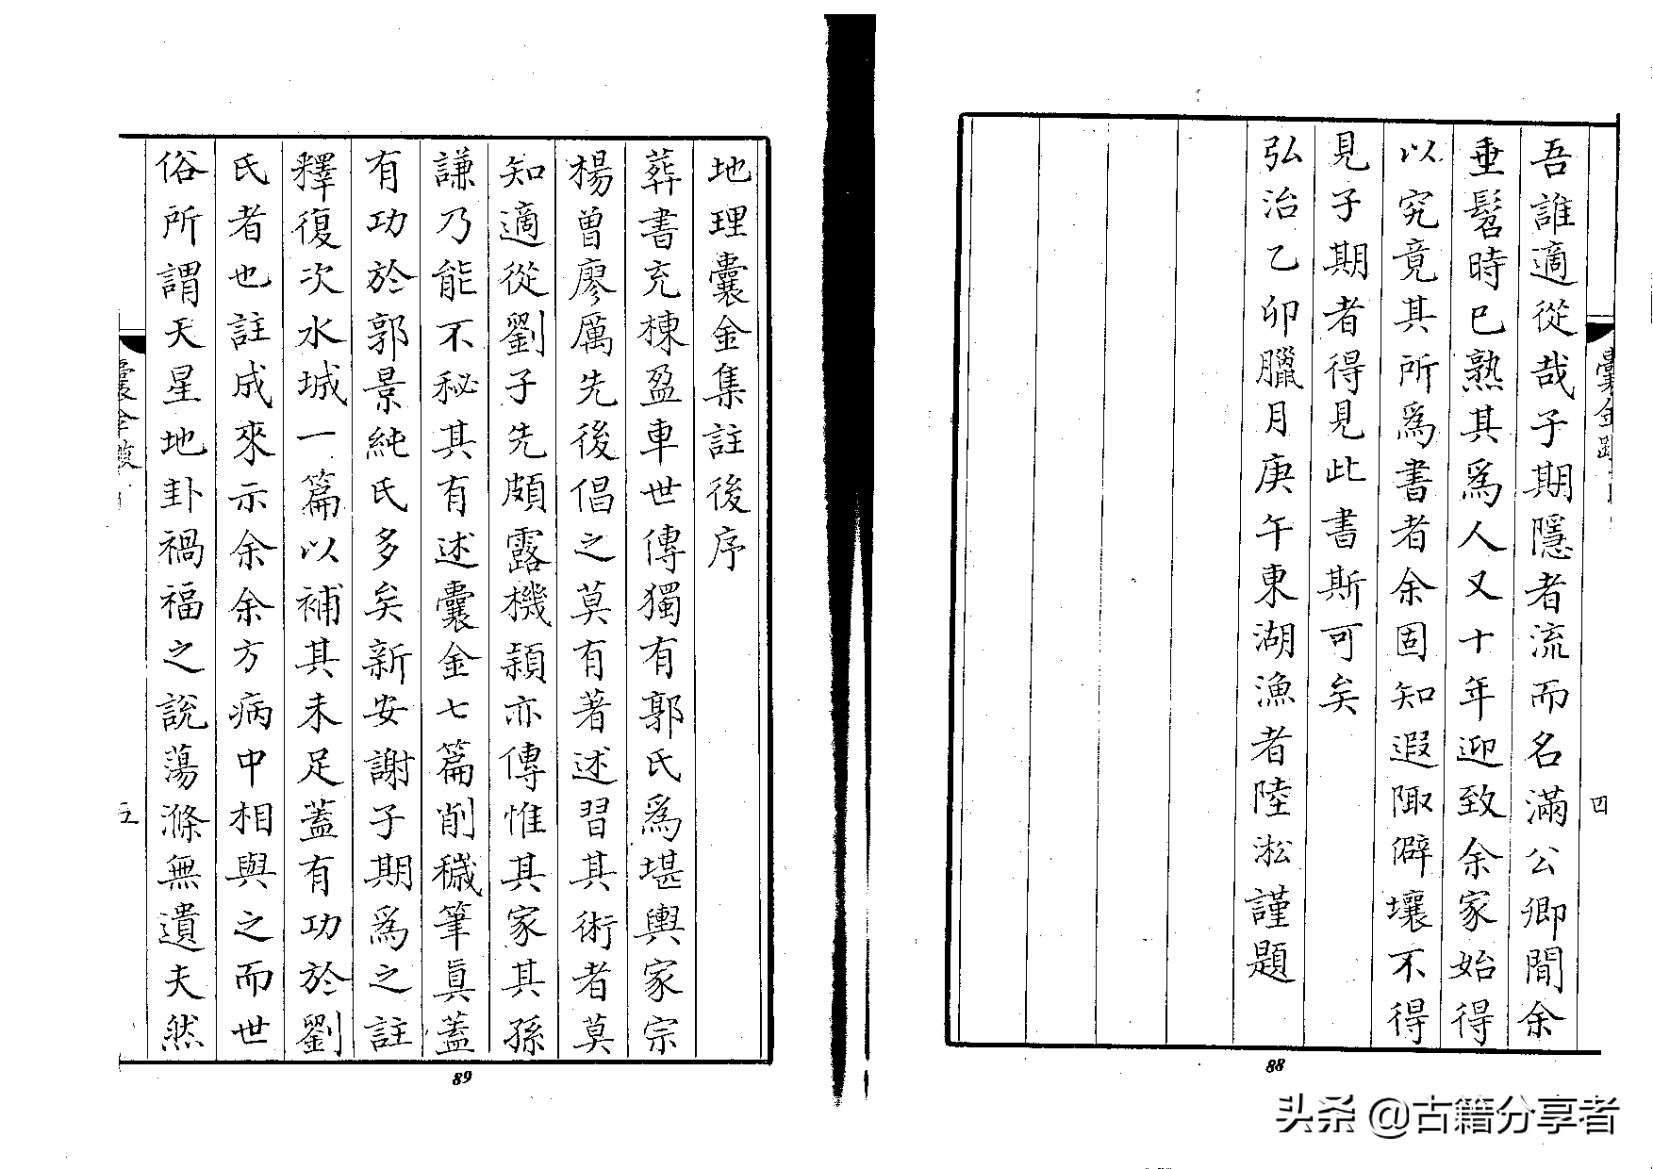 吾誰適從哉子期隱者流而名滿公卿間余
垂髫時已熟其爲人又十年迎致余家始得
以究竟其所爲書者余固知遐陬僻壤不得
見子期者得見此書斯可矣
弘治乙卯臘月庚午東湖漁者陸淞謹題
四
88
地理囊金集註後序
葬書充棟盈車世傳獨有郭氏爲堪輿家宗
楊曾廖厲先後倡之莫有著述習其術者莫
知適從劉子先頗露機穎亦傳惟其家其孫
謙乃能不秘其有述囊金七篇削穢筆真蓋
有功於郭景純氏多矣新安謝子期爲之註
釋復次水城一篇以補其未足蓋有功於劉
氏者也註成來示余余方病中相與之而世
俗所謂天星地卦禍福之說蕩滌無遺夫然
五
89
头条 @古籍分享者